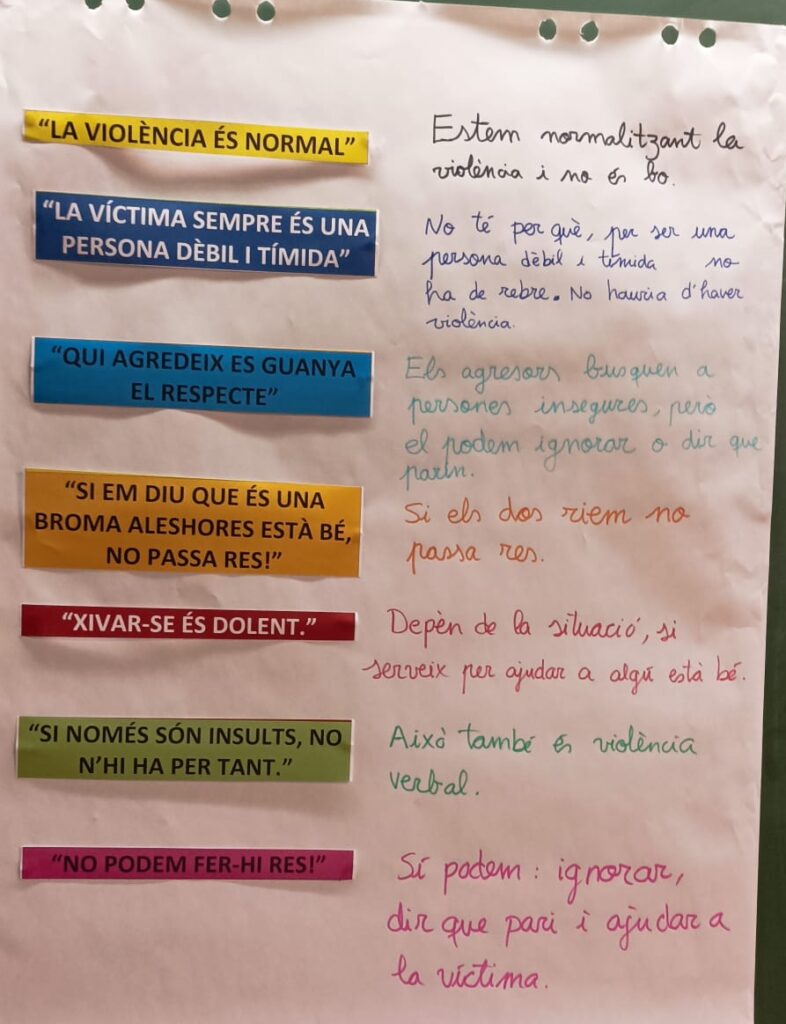 “LA VIOLÈNCIA ÉS NORMAL”
Estem normalitzant la
violència i no és bo.
“LA VÍCTIMA SEMPRE ÉS UNA
PERSONA DÈBIL I TÍMIDA”
No té per què, per ser una
persona dèbil i tímida no
ha de rebre. No hauria d'haver
violència.
“QUI AGREDEIX ES GUANYA
EL RESPECTE”
Els agresors busquen a
persones insegures, però
el podem ignorar o dir que
parin.
“SI EM DIU QUE ÉS UNA
BROMA ALESHORES ESTÀ BÉ,
NO PASSA RES!”
Si els dos riem no
passa res.
“XIVAR-SE ÉS DOLENT.”
Depèn de la situació, si
serveix per ajudar a algú està bé.
“SI NOMÉS SÓN INSULTS, NO
N'HI HA PER TANT.”
Això també és violència
verbal.
“NO PODEM FER-HI RES!”
Sí podem: ignorar,
dir que pari i ajudar a
la víctima.